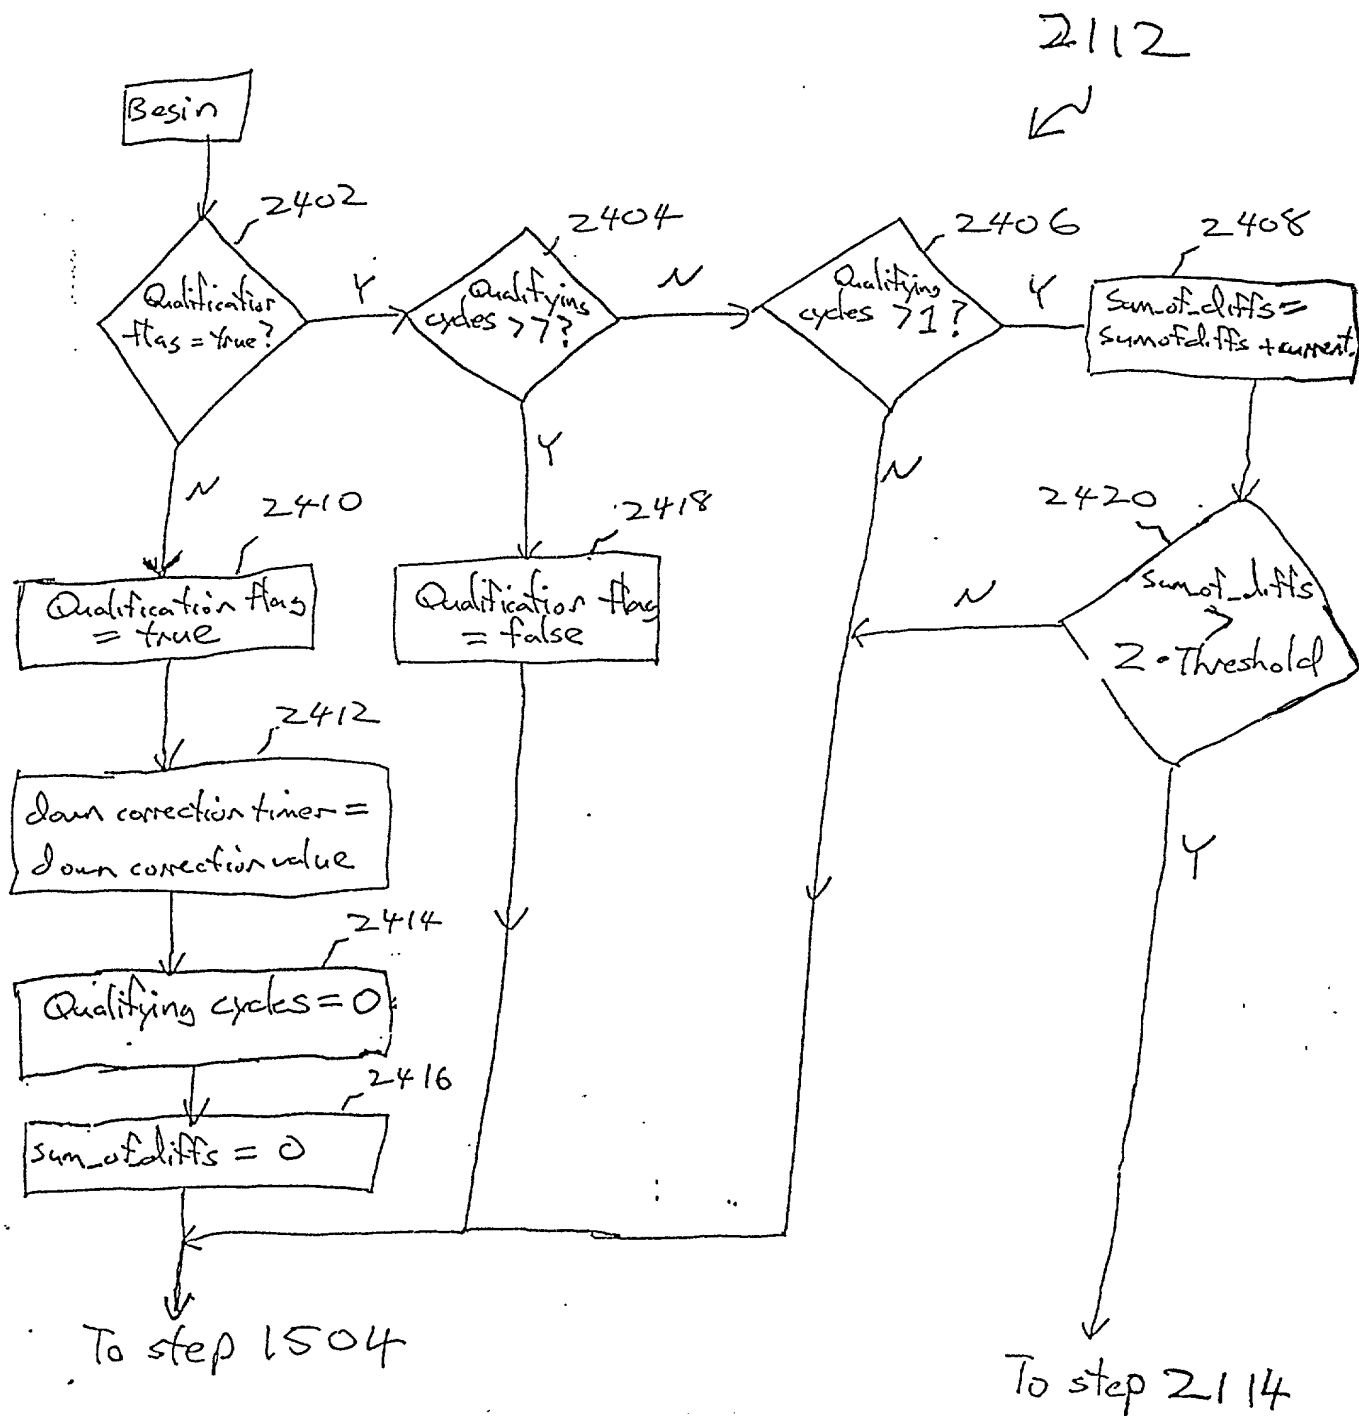 2112
Begin
2402
Qualification
flag = true?
Y
N
2404
Qualifying
cycles > 7?
N
Y
2406
Qualifying
cycles > 1?
Y
N
2408
Sum_of_diffs =
sumofdiffs + current.
2410
Qualification flag
= true
2418
Qualification flag
= false
2420
sumof_diffs
>
2 • Threshold
N
Y
2412
down correction timer =
down correction value
2414
Qualifying cycles = 0
2416
sum_of_diffs = 0
To step 1504
To step 2114